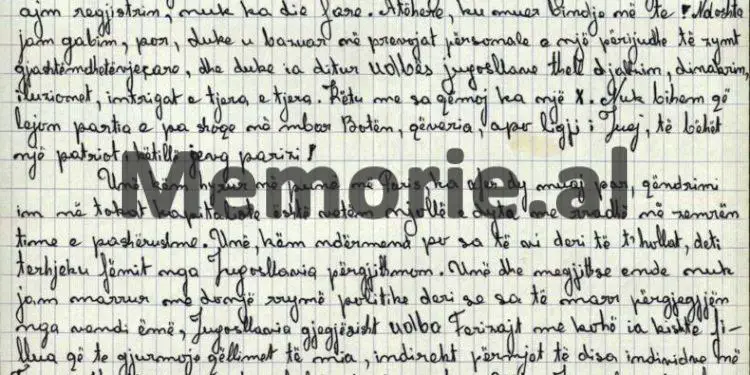 ajm regjistrim, nuk ka die fare. Atëhere, ku muer bindje më te? Ndoshta
jam gabim, por, duke u bazuar në prevojat personale e një përijudhe të zymt
gjashtëmdhetëvjeçare, dhe duke ia ditur UDBës jugosllave thell djallzim, dinakrim,
iluzionet, intrigat e tjera, e tjera. Këtu me sa gëmoj ka një X. Nuk bihem që
lejon partia e pa shoqe në mbar Botën, qeveria, apo ligji i Juej, të bëhet
një patriot këtillë jeng parizi!
Memorie.al
Unë kam hyrur në punë në Paris ka afer dy muej, qëndrimi
im në tokat kapitaliste është vetëm njollë e dyta me rradhë në zemrën
time e pashërushme. Unë, kam ndërmend po sa të vi deri të ti hollat, deti
terhjeku fëmit nga Jugosllavia përgjithmon. Unë dhe megjithse ende nuk
jam marrur me donjë rrymë politike deri se sa të marr përgjegjjen
nga vendi ëmë, Jugosllavia gjegjësisht UDBA Ferizajt me kohë ia kishte fi-
llua që te gjurmoje qëllimet të mia, indirekt përmjet të disa individve në